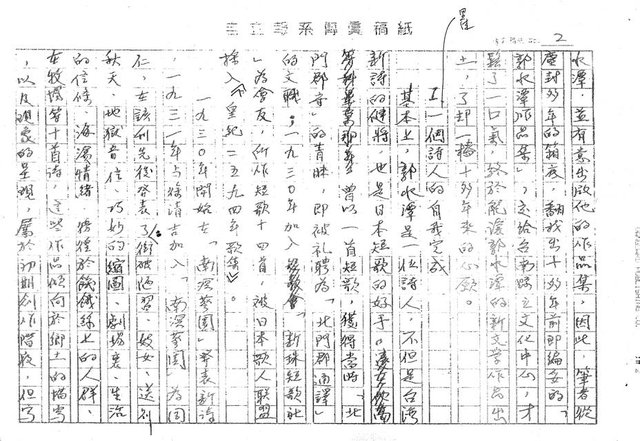 2
水潭,並有意出版他的作品集,因此,筆者從
塵封多年的箱底,翻找出十多年前即編妥的「
郭水潭作品集」,交給台南縣立文化中心,才
鬆了一口氣,終於能讓郭水潭的新文學作品出
土,了却一樁十多年來的心願。
Ⅰ 一個詩人的自我完成
基本上,郭水潭是一位詩人,不但是台灣
新詩的健將,也是日本短歌的好手。
曾以一首短歌,獲得當時「北
門郡守」的青睞,即被礼聘為「北門郡通譯」
的文職;一九三〇年加入 新珠短歌社
」為會友,所作短歌十四首,被日本歌人聯盟
採入《皇紀二五九四年歌集》。
一九三〇年開始在「南溟藝園」發表新詩
,一九三一年與徐清吉加入「南溟藝園」為同
仁,在該刊先後發表了 妓女、送別
秋天、地獄音信、巧妙的縮圖、劇場裏、生活
的信條、海濱情緒 徬徨於飢餓線上的人群、
在牧場等十首詩,這些作品傾向於鄉土的描寫
,以及現象的呈現 屬於初期創作階段,但寫